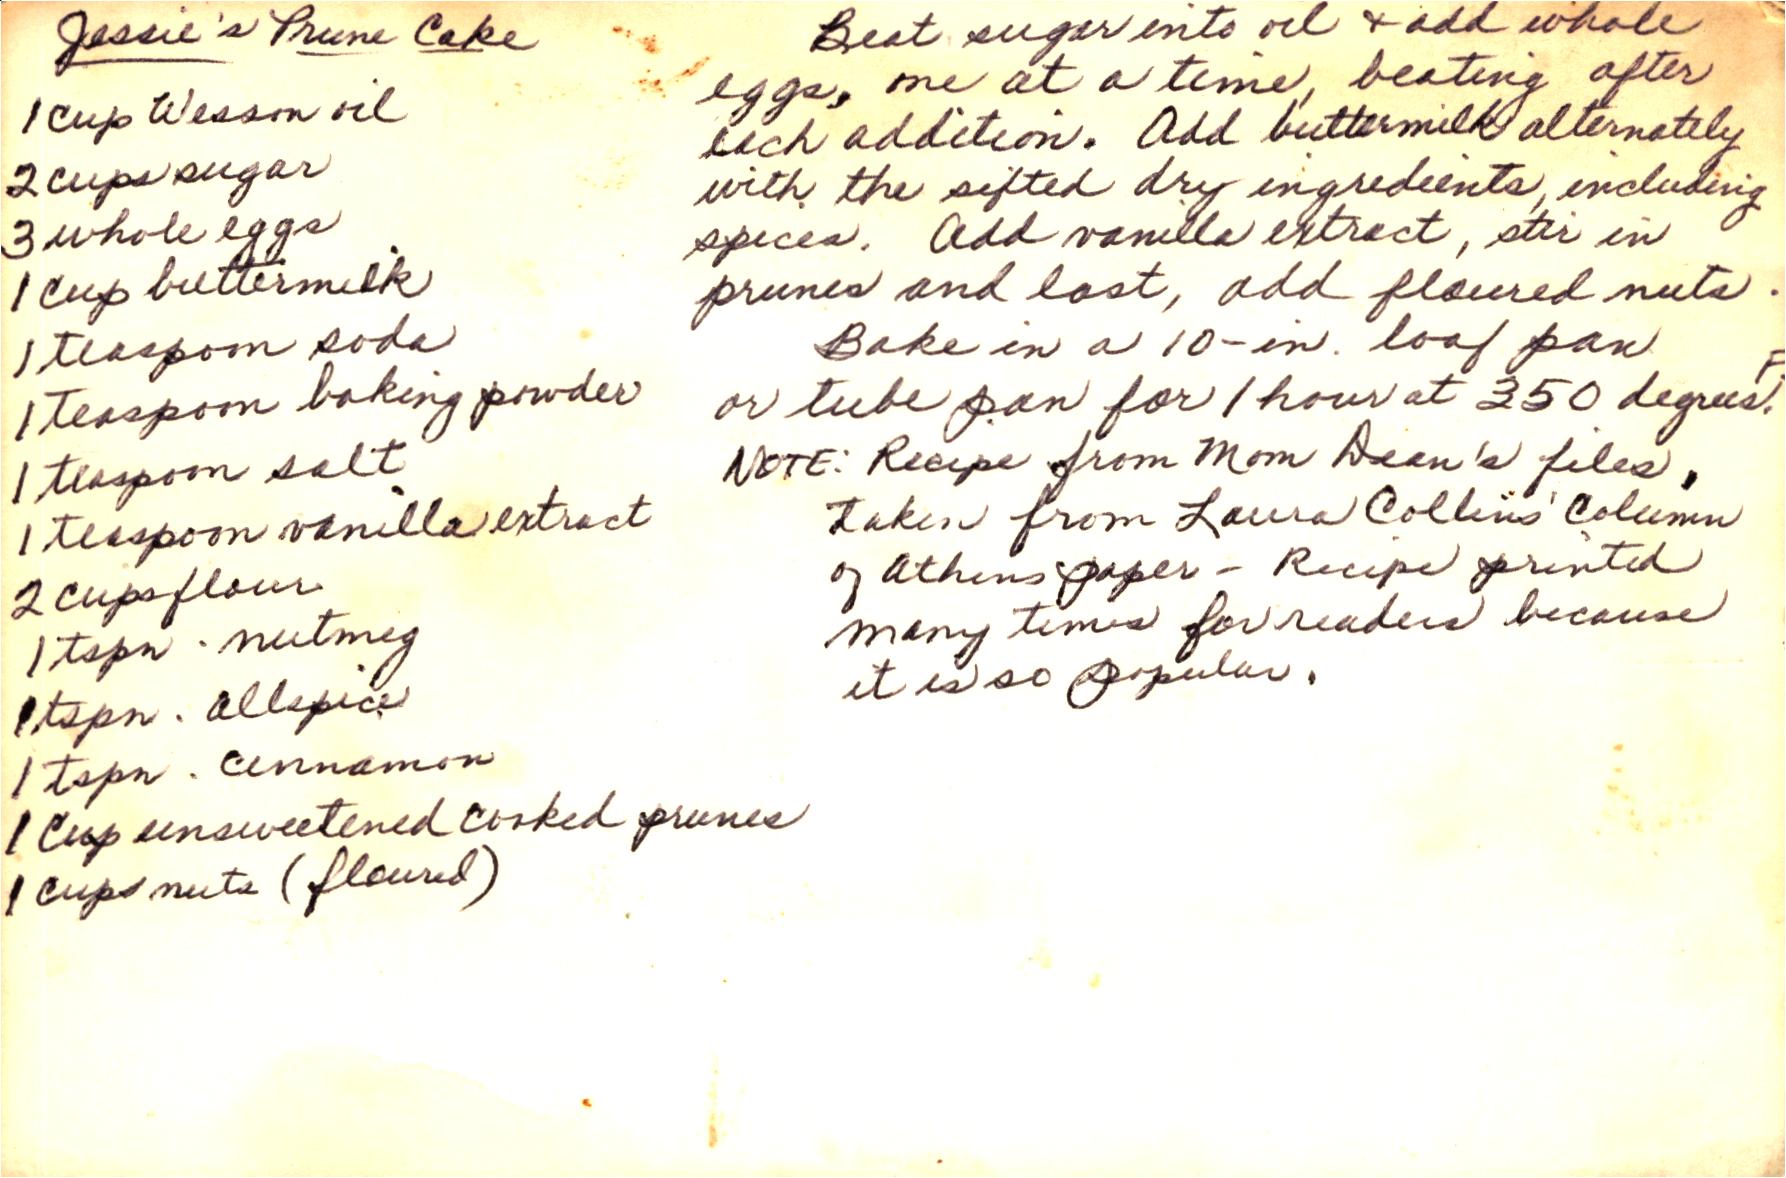 Jessie's Prune Cake
1 cup Wesson oil
2 cups sugar
3 whole eggs
1 cup buttermilk
1 teaspoon soda
1 teaspoon baking powder
1 teaspoon salt
1 teaspoon vanilla extract
2 cups flour
1 tspn. nutmeg
1 tspn. allspice
1 tspn. cinnamon
1 cup unsweetened cooked prunes
1 cups nuts (floured)
Beat sugar into oil & add whole
eggs, one at a time, beating after
each addition. Add buttermilk alternately
with the sifted dry ingredients, including
spices. Add vanilla extract, stir in
prunes and last, add floured nuts.
Bake in a 10-in. loaf pan
or tube pan for 1 hour at 350 degrees F.
NOTE: Recipe from Mom Dean's files,
taken from Laura Collins' Column
of Athens paper - Recipe printed
many times for readers because
it is so popular.